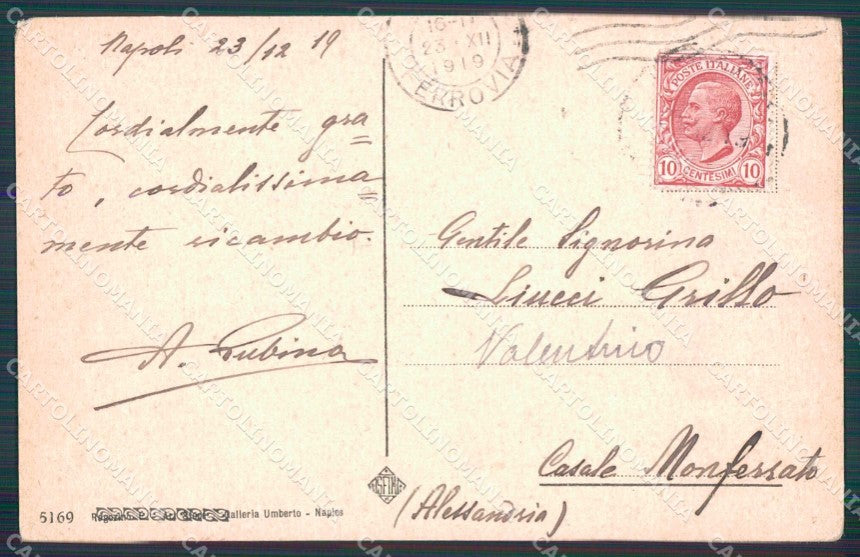 Napoli 23/12 19
Cordialmente gra=
to, cordialissima=
mente ricambio.
A. Rubina
16-17
23 XII
1919
FERROVIA
POSTE ITALIANE
10 CENTESIMI 10
Gentile Signorina
Liucci Grillo
Valentino
Casale Monferrato
(Alessandria)
5169
Galleria Umberto - Naples
CARTOLINOMANIA